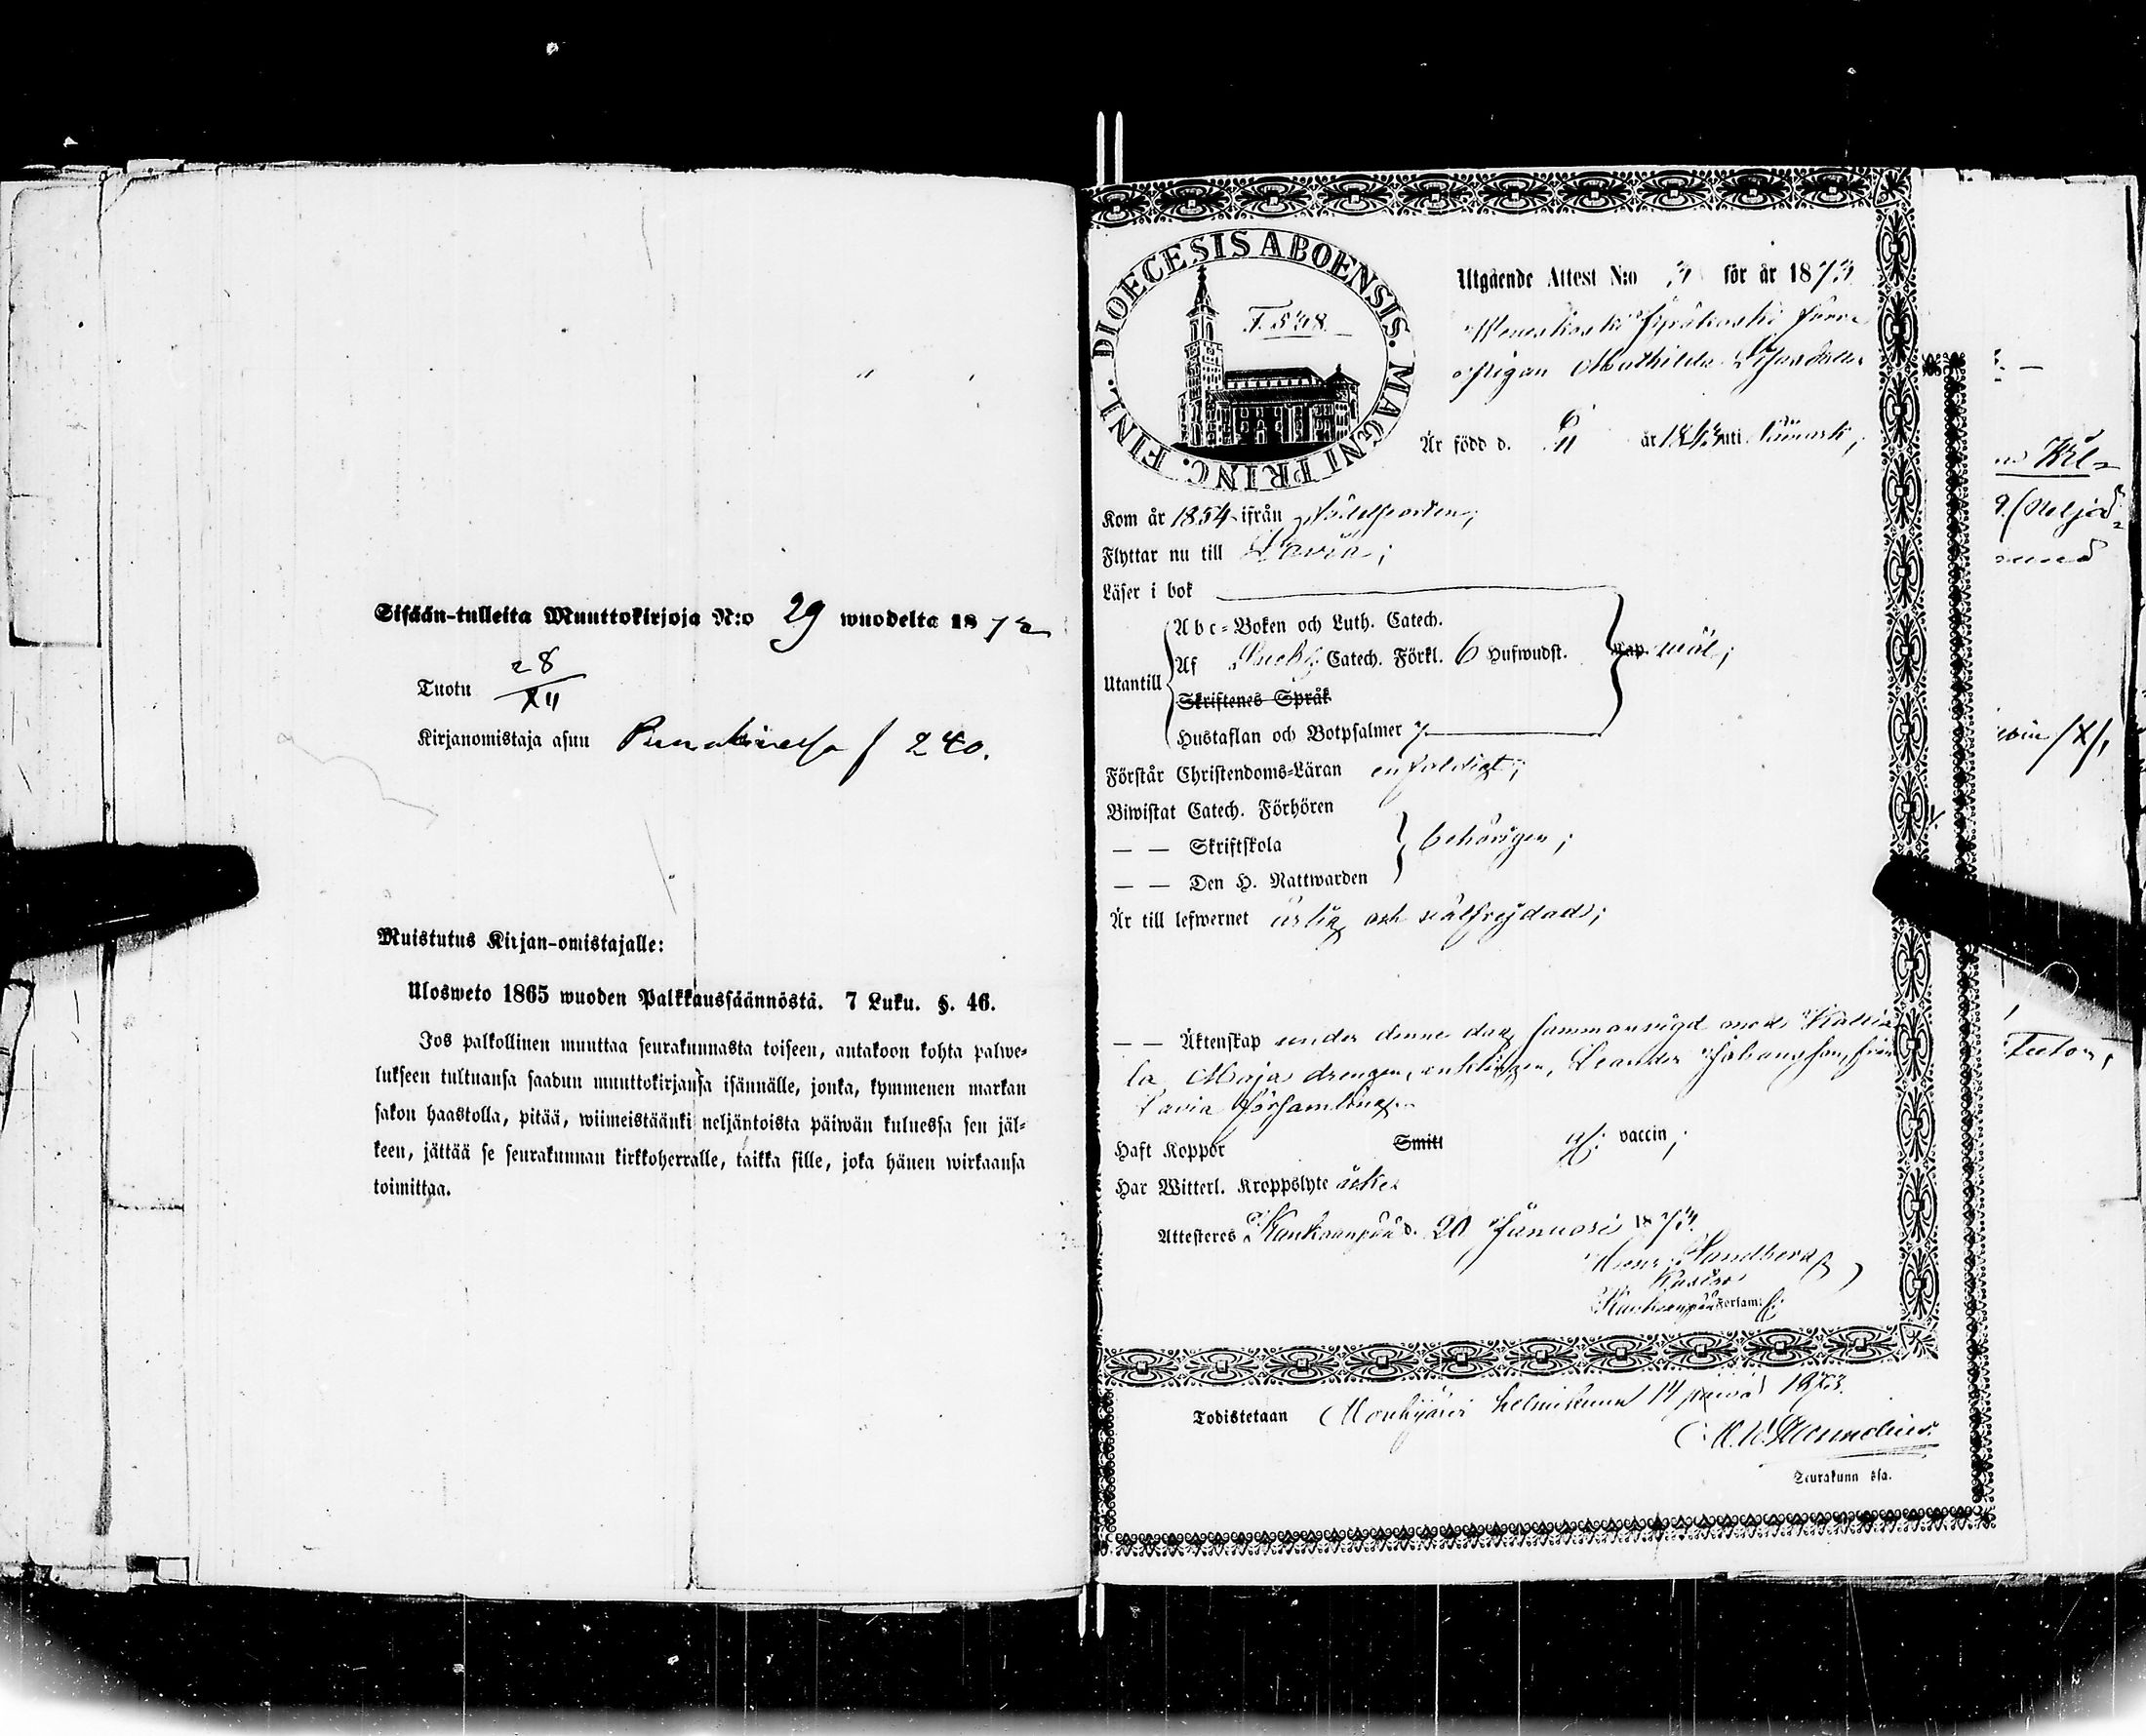 Sisään-tulleita Muuttokirjoja N:o 29 wuodelta 1872
Tuotu 28/XII
Kirjanomistaja asuu f 240.
Muistutus Kirjan-omistajalle:
Ulosweto 1865 wuoden Palkkaussäännöstä. 7 Luku. §. 46.
Jos palkollinen muuttaa seurakunnasta toiseen, antakoon kohta palwe-
lukseen tultuansa saadun muuttokirjansa isännälle, jonka, kymmenen markan
sakon haastolla, pitää, wiimeistäänki neljäntoista päiwän kuluessa sen jäl-
keen, jättää se seurakunnan kirkkoherralle, taikka sille, joka hänen wirkaansa
toimittaa.
DIOECESIS ABOENSIS. MAGNI PRINC. FINL.
F. 538.
Utgående Attest N:o 3 för år 1873.
Pigan Mathilda
Är född d. 6/11 år 1843 uti
Kom år 1854 ifrån
Flyttar nu till Lavia;
Läser i bok
Utantill
Abc-Boken och Luth. Catech.
Af Catech. Förkl. 6 Hufwudst. wäl;
Skriftenes Språk
Hustaflan och Botpsalmer
Förstår Christendoms-Läran enfaldigt;
Biwistat Catech. Förhören
— — Skriftskola behörigen;
— — Den H. Nattwarden
Är till lefwernet ärlig och wälfrejdad;
— — Äktenskap under denne dag sammanvigd med
la Maja drengen, enklingen, Leander Johansson, från
Lavia församling.
Haft Koppor Smitt vaccin;
Har Witterl. Kroppslyte icke.
Attesteres Kankaanpää d. 20 Januari 1873.
Sandberg
Kankaanpää Forsam:
Todistetaan Mouhijärvi helmikuun 14 päivä 1873.
Seurakunn ssa.
Tutor,